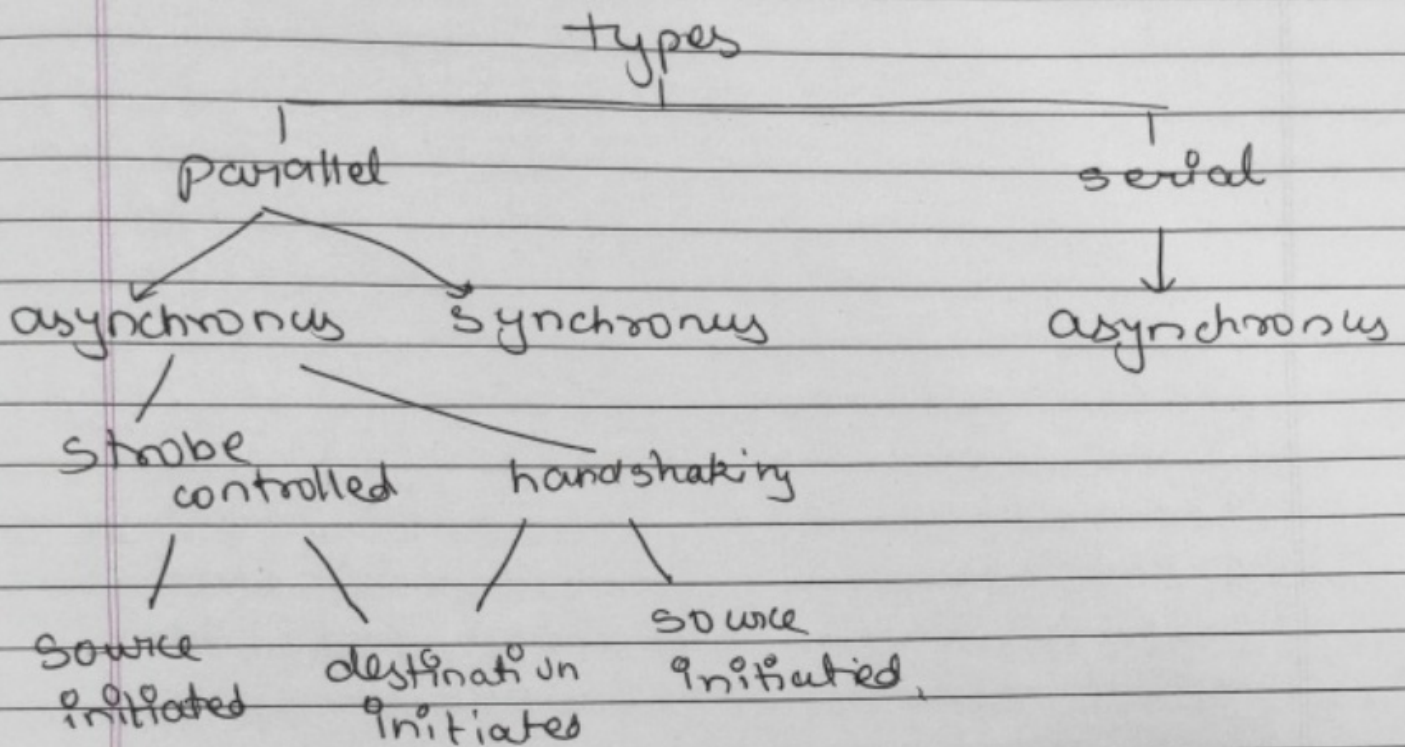 types
parallel serial
asynchronus synchronus asynchronus
strobe
controlled handshaking
source destination source
initiated initiates initiatied,